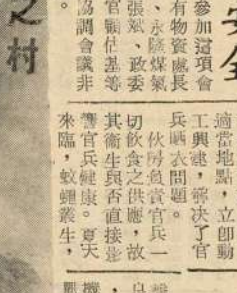 全
參加這項會
有物資處長
、永隆煤氣
張斌、政委
官顧佔基等
協調會議非
。
之村
適當地點，立即動
工興建，解決了官
兵晒衣問題。
伙房負責官兵一
切飲食之供應，故
其衛生與否直接影
響官兵健康。夏天
來臨，蚊蠅叢生，